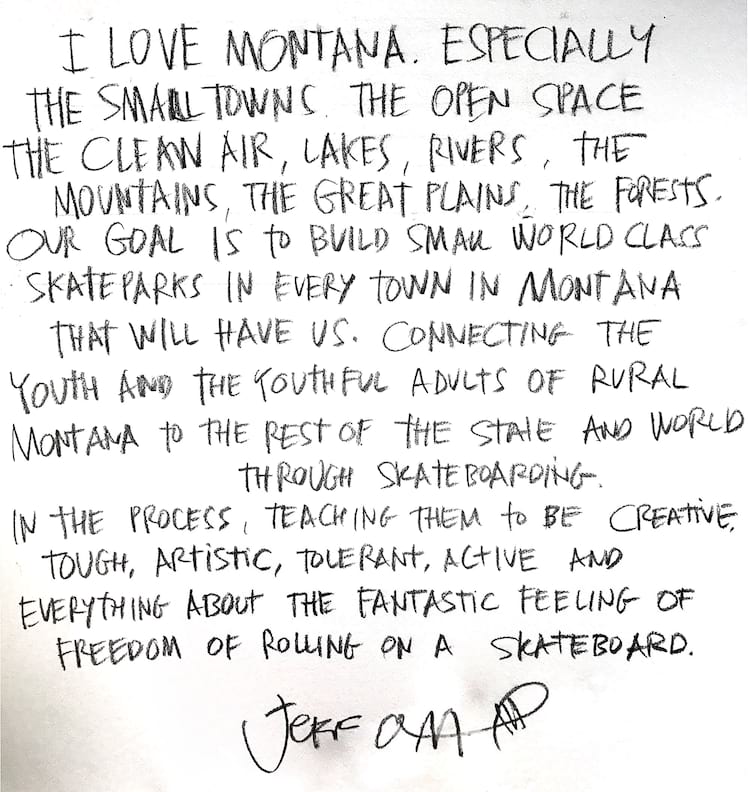 I LOVE MONTANA. ESPECIALLY
THE SMALL TOWNS. THE OPEN SPACE
THE CLEAN AIR, LAKES, RIVERS, THE
MOUNTAINS, THE GREAT PLAINS, THE FORESTS.
OUR GOAL IS to BUILD SMALL WORLD CLASS
SKATEPARKS IN EVERY TOWN IN MONTANA
THAT WILL HAVE US. CONNECTING THE
YOUTH AND THE YOUTHFUL ADULTS OF RURAL
MONTANA TO THE REST OF THE STATE AND WORLD
THROUGH SKATEBOARDING.
IN THE PROCESS, TEACHING THEM to BE CREATIVE,
TOUGH, ARTISTIC, TOLERANT, ACTIVE AND
EVERYTHING ABOUT THE FANTASTIC FEELING OF
FREEDOM OF ROLLING ON A SKATEBOARD.
JEFF